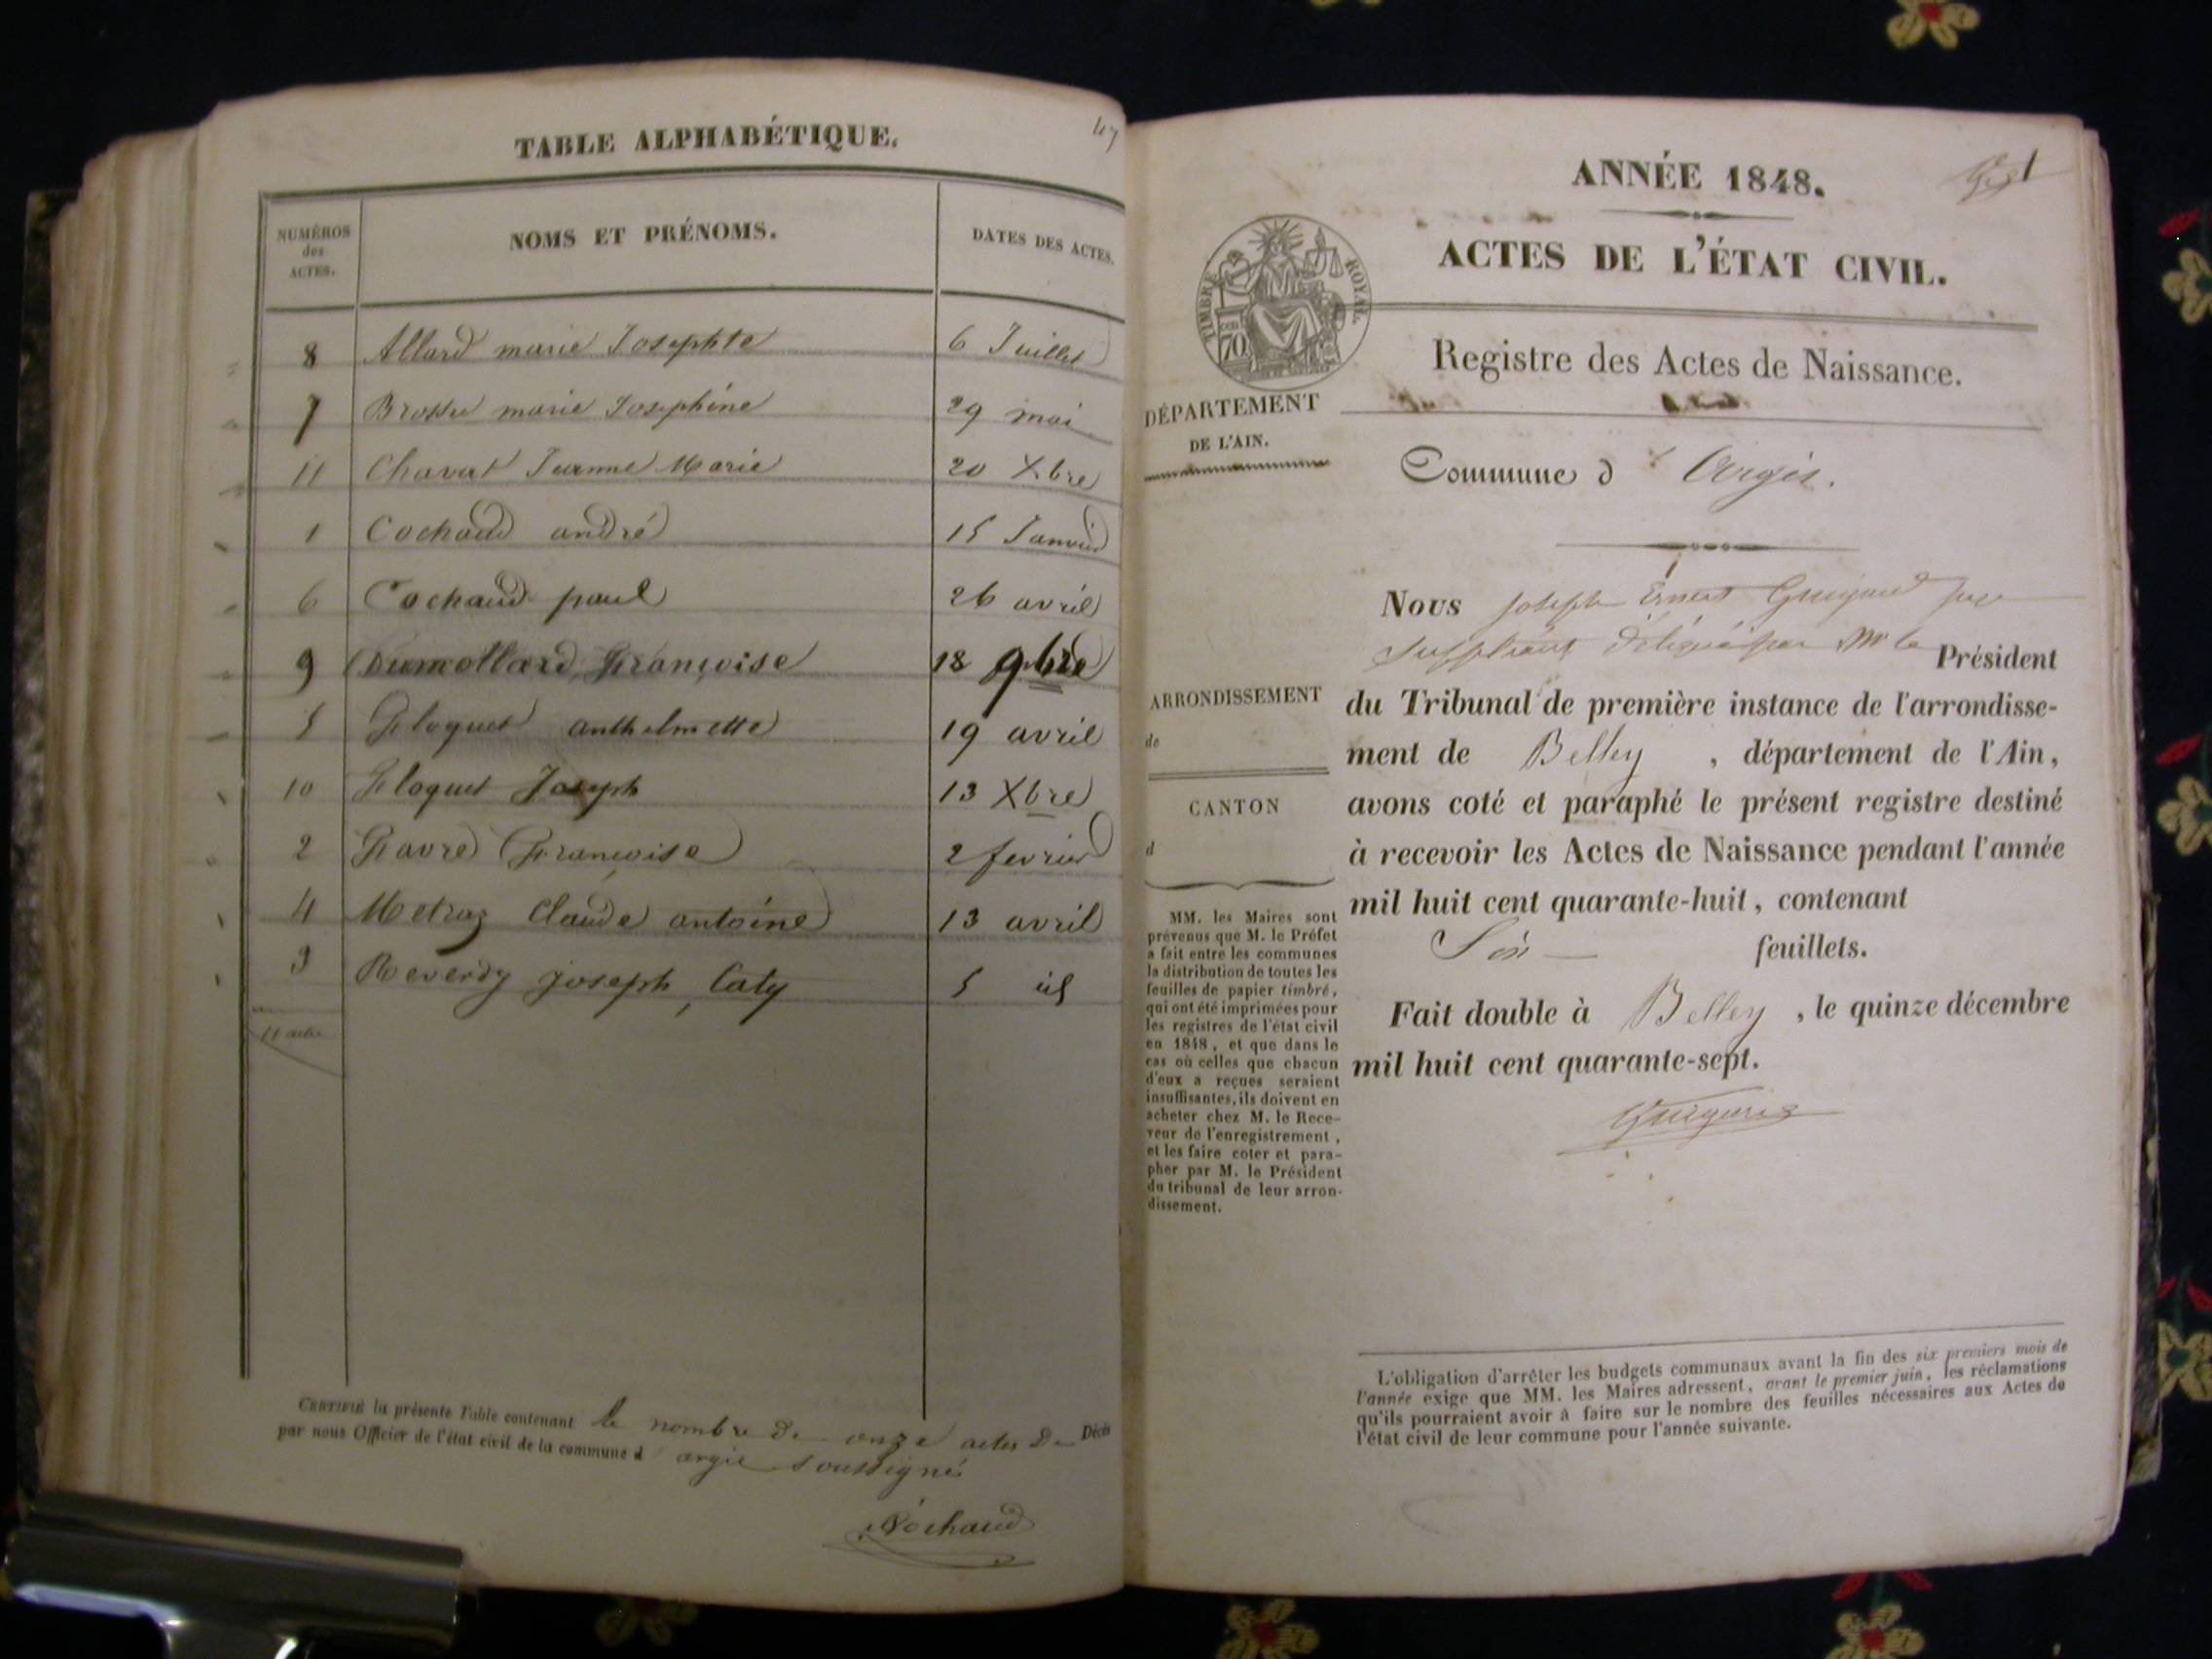 TABLE ALPHABÉTIQUE.
47
NUMÉROS
des
ACTES.
NOMS ET PRÉNOMS.
DATES DES ACTES.
8 Allard marie Josephte 6 Juillet
7 marie Josephine 29 mai
11 Chavat Jeanne Marie 20 Xbre
1 Cochaud andré 15 Janvier
6 Cochaud paul 26 avril
9 Dumollard Françoise 18 9bre
5 Floquet anthelmette 19 avril
10 Floquet Joseph 13 Xbre
2 Favre Françoise 2 fevrier
4 Metraz Claude antoine 13 avril
3 Reverdy joseph, Caty 5 id
11 actes
CERTIFIÉ la présente Table contenant le nombre de onze actes De Décès
par nous Officier de l'état civil de la commune d argis soussigné
Cochaud
ANNÉE 1848.
1
ACTES DE L'ÉTAT CIVIL.
TIMBRE ROYAL.
70
Registre des Actes de Naissance.
DÉPARTEMENT
DE L'AIN.
Commune d Argis.
Nous Joseph Ernest Guigard juge
Suppléant délégué par Mr le Président
ARRONDISSEMENT
de
CANTON
d
du Tribunal de première instance de l'arrondisse-
ment de Belley , département de l'Ain,
avons coté et paraphé le présent registre destiné
à recevoir les Actes de Naissance pendant l'année
mil huit cent quarante-huit, contenant
Six feuillets.
Fait double à Belley , le quinze décembre
mil huit cent quarante-sept.
MM. les Maires sont
prévenus que M. le Préfet
a fait entre les communes
la distribution de toutes les
feuilles de papier timbré,
qui ont été imprimées pour
les registres de l'état civil
en 1848, et que dans le
cas où celles que chacun
d'eux a reçues seraient
insuffisantes, ils doivent en
acheter chez M. le Rece-
veur de l'enregistrement,
et les faire coter et para-
pher par M. le Président
du tribunal de leur arron-
dissement.
L'obligation d'arrêter les budgets communaux avant la fin des six premiers mois de
l'année exige que MM. les Maires adressent, avant le premier juin, les réclamations
qu'ils pourraient avoir à faire sur le nombre des feuilles nécessaires aux Actes de
l'état civil de leur commune pour l'année suivante.